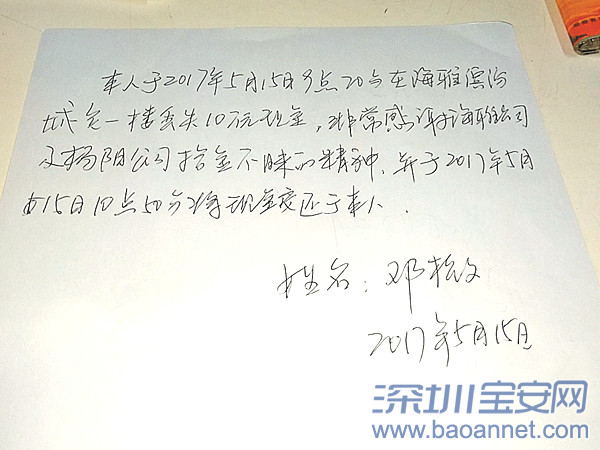 本人于2017年5月15日9点20分在海雅缤纷
城负一楼丢失10万元现金,非常感谢海雅公司
及杨阳公司拾金不昧的精神,并于2017年5月
15日10点50分将现金交还于本人.
姓名:邓松文
2017年5月15日
深圳宝安网
www.baoannet.com